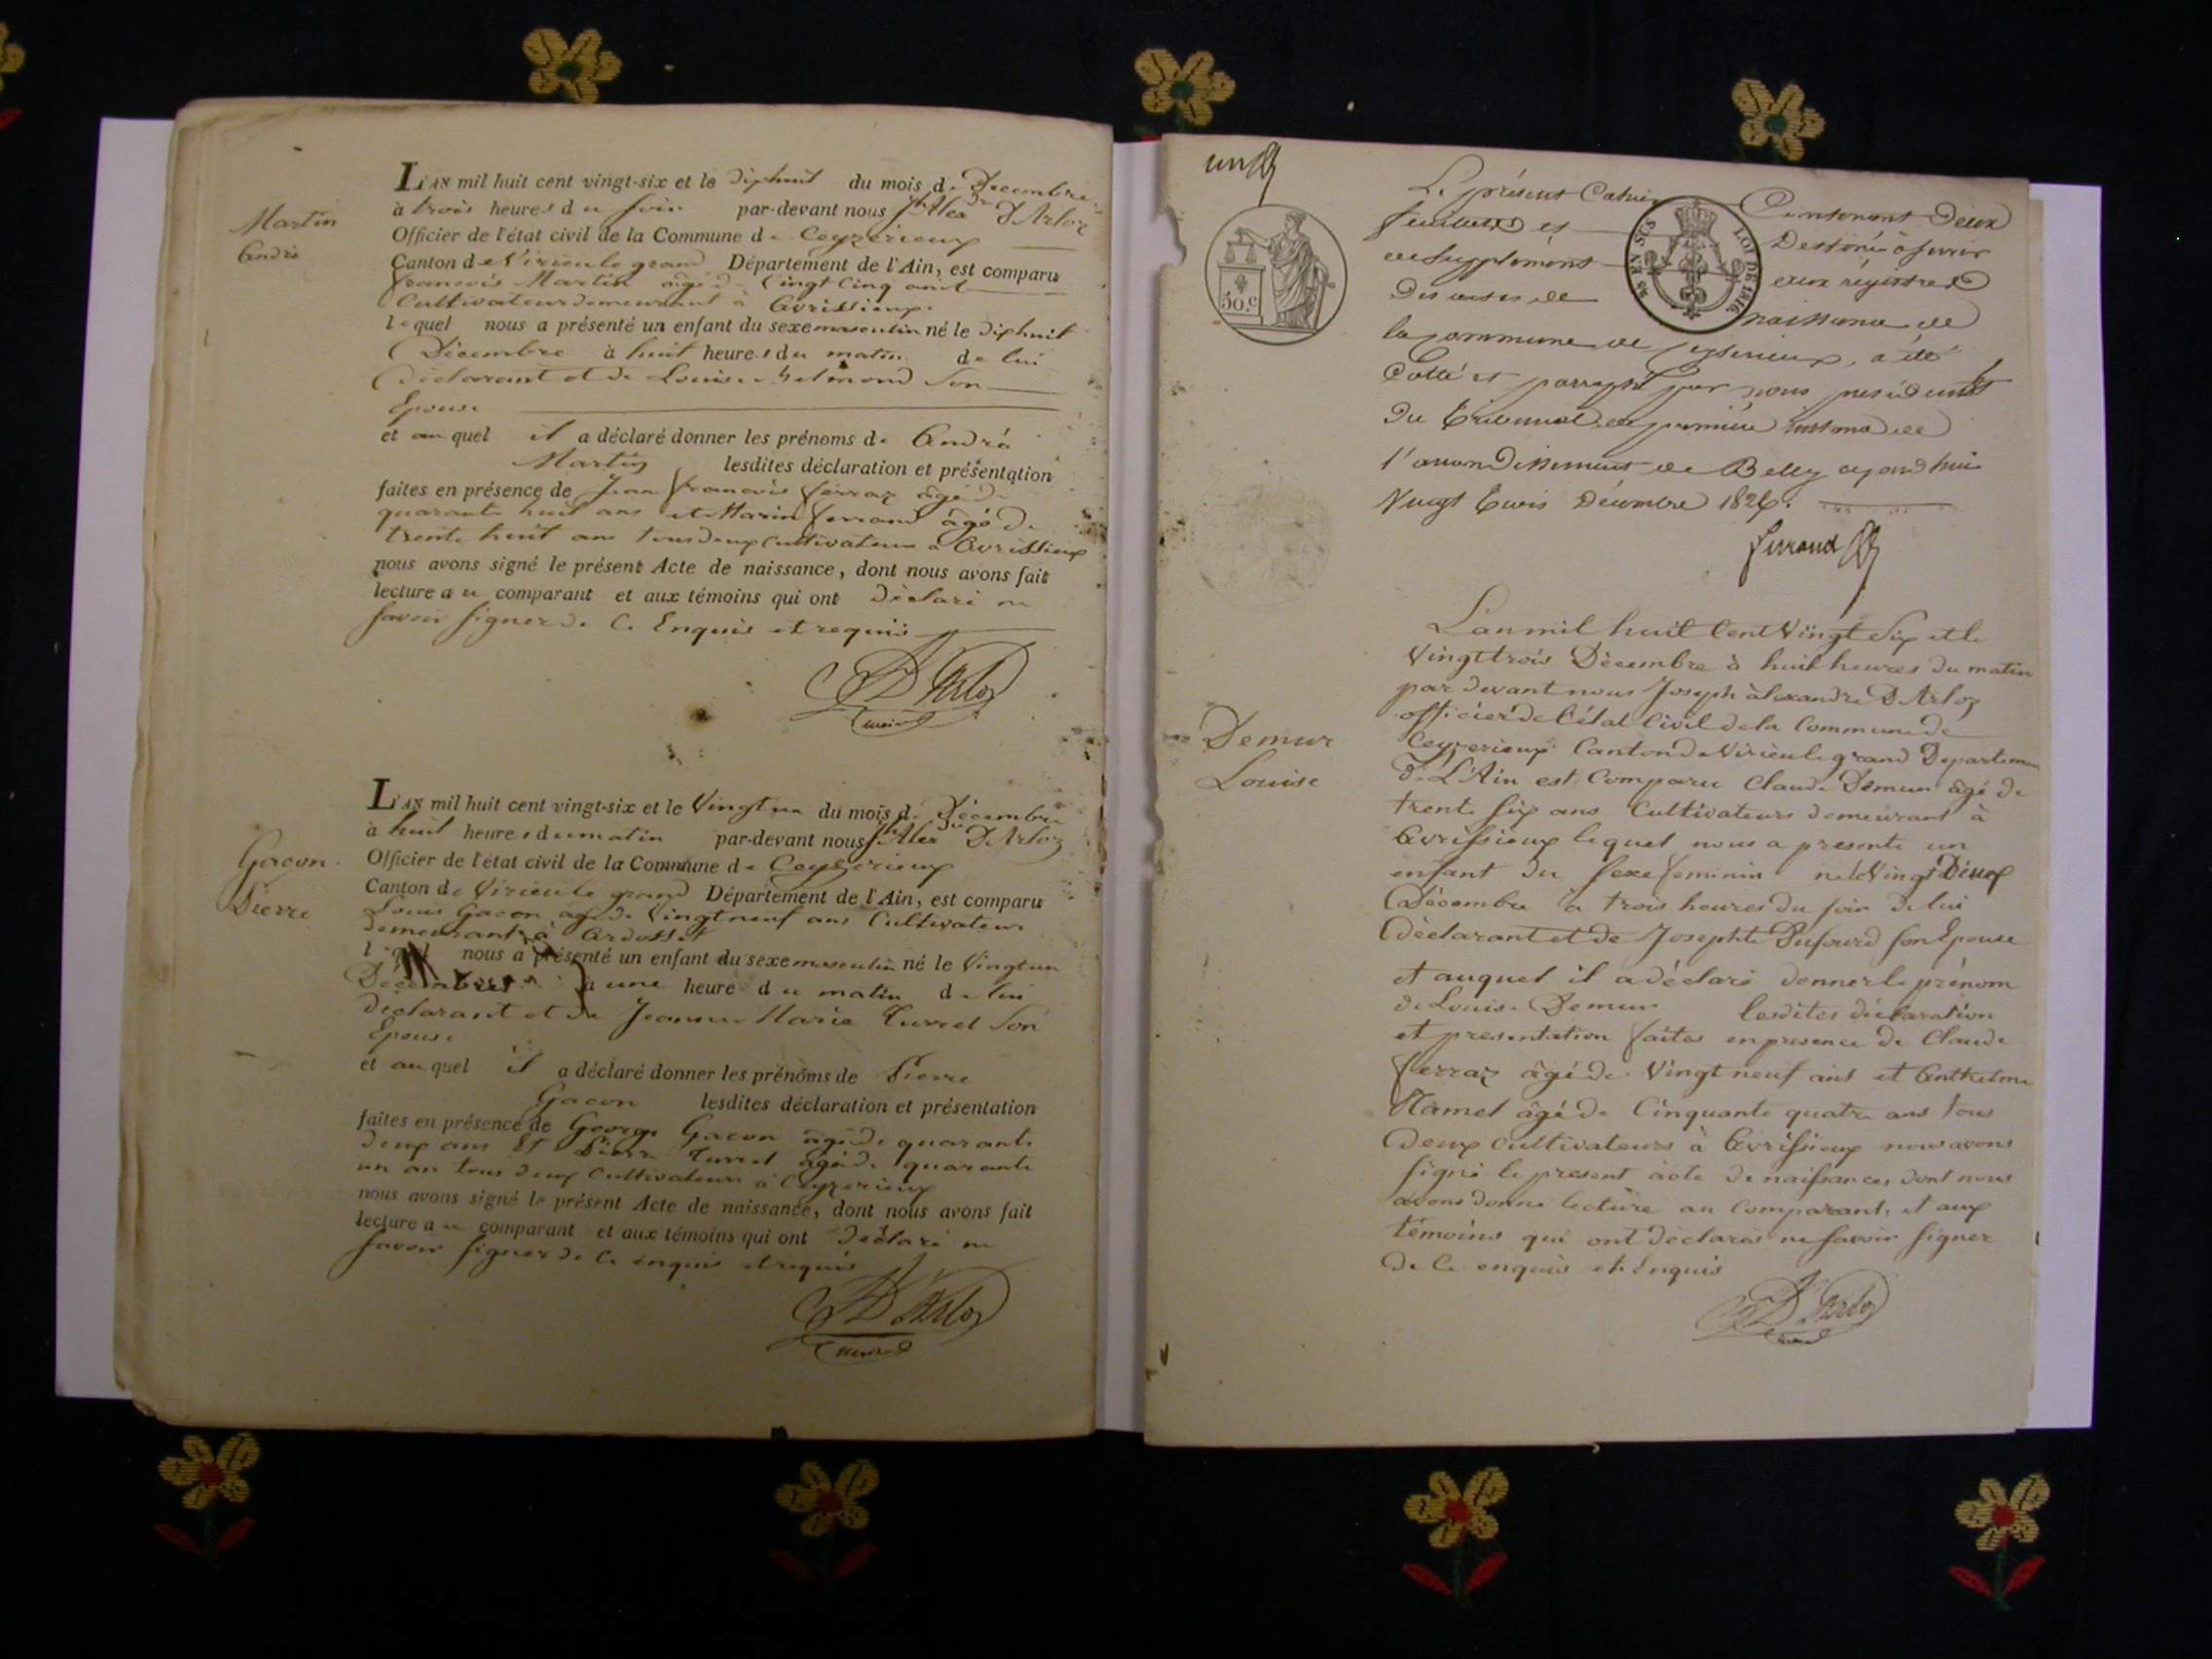 Martin
André
L'AN mil huit cent vingt-six et le dixhuit du mois de Décembre
à trois heures du soir par-devant nous Jh Alex dre D'Arloz
Officier de l'état civil de la Commune de Ceyzerieux
Canton de Virieu le grand Département de l'Ain, est comparu
francois Martin agé de Vingt Cinq ans
Cultivateur demeurant à Avrissieux
lequel nous a présenté un enfant du sexe masculin né le dixhuit
Décembre à huit heures du matin de lui
déclarant et de Louise son
Epouse
et auquel il a déclaré donner les prénoms de André
Martin lesdites déclaration et présentation
faites en présence de Jean francois ferraz âgé de
quarante huit ans et Marin ferrand âgé de
trente huit ans tous deux cultivateurs a Avrissieux
nous avons signé le présent Acte de naissance, dont nous avons fait
lecture au comparant et aux témoins qui ont déclaré ne
savoir signer de Ce Enquis et requis
D'Arloz
maire
Gacon
Pierre
L'AN mil huit cent vingt-six et le Vingt un du mois de Décembre
à huit heures du matin par-devant nous Jh Alex dre D'Arloz
Officier de l'état civil de la Commune de Ceyzerieux
Canton de Virieu le grand Département de l'Ain, est comparu
Louis Gacon agé de Vingt neuf ans Cultivateur
demeurant à Ardosset
lequel nous a présenté un enfant du sexe masculin né le Vingt un
Décembre à une heure du matin de lui
déclarant et de Jeanne Marie Turrel son
Epouse
et auquel il a déclaré donner les prénoms de Pierre
Gacon lesdites déclaration et présentation
faites en présence de George Gacon âgé de quarante
deux ans Et Pierre Turrel âgé de quarante
un an tous deux Cultivateurs à Ceyzerieux
nous avons signé le présent Acte de naissance, dont nous avons fait
lecture au comparant et aux témoins qui ont déclaré ne
savoir signer de Ce enquis et requis
D'Arloz
maire
un
50.c
EN SUS LOI DE 1816
Le présent Cahier Contenant Deux
feuillets et Destiné à servir
de supplément aux régistres
Des actes de naissance de
la commune de Ceyzerieux, a été
Cotté et parraphé par nous président
Du Tribunal de première instance de
l'arrondissement de Belley aujourd'hui
Vingt trois Décembre 1826.
ferrand
Demur
Louise
L'an mil huit Cent Vingt Six et le
Vingt trois Décembre à huit heures du matin
par devant nous Joseph àlexandre D'Arloz
officier de l'état Civil de la Commune de
Ceyzerieux Canton de Virieu le grand Departement
de L'Ain est Comparu Claude Demur âgé de
trente six ans Cultivateurs demeurant à
Avrissieux lequel nous a presenté un
enfant du sexe feminin né le Vingt Deux
Décembre à trois heures du soir de lui
Déclarant et de Josephte Dufourd son Epouse
et auquel il a déclaré donner le prénom
de Louise Demur lesdites déclaration
et presentation faites en presence de Claude
ferraz âgé de Vingt neuf ans et Anthelme
Hamel âgé de Cinquante quatre ans tous
deux cultivateurs à Avrissieux nous avons
signé le present acte de naissance, dont nous
avons donné lecture au Comparant, et aux
témoins qui ont déclarés ne savoir signer
de Ce enquis et Enquis
D'Arloz
maire